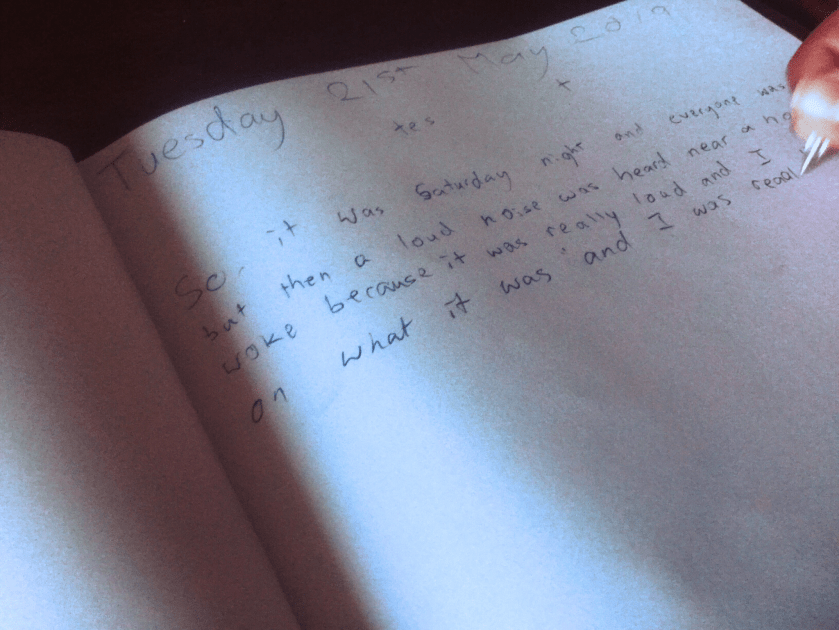 Tuesday 21st May 2019
tes t
So, it was Saturday night and everyone was
but then a loud noise was heard near a
woke because it was really loud and I
on what it was and I was